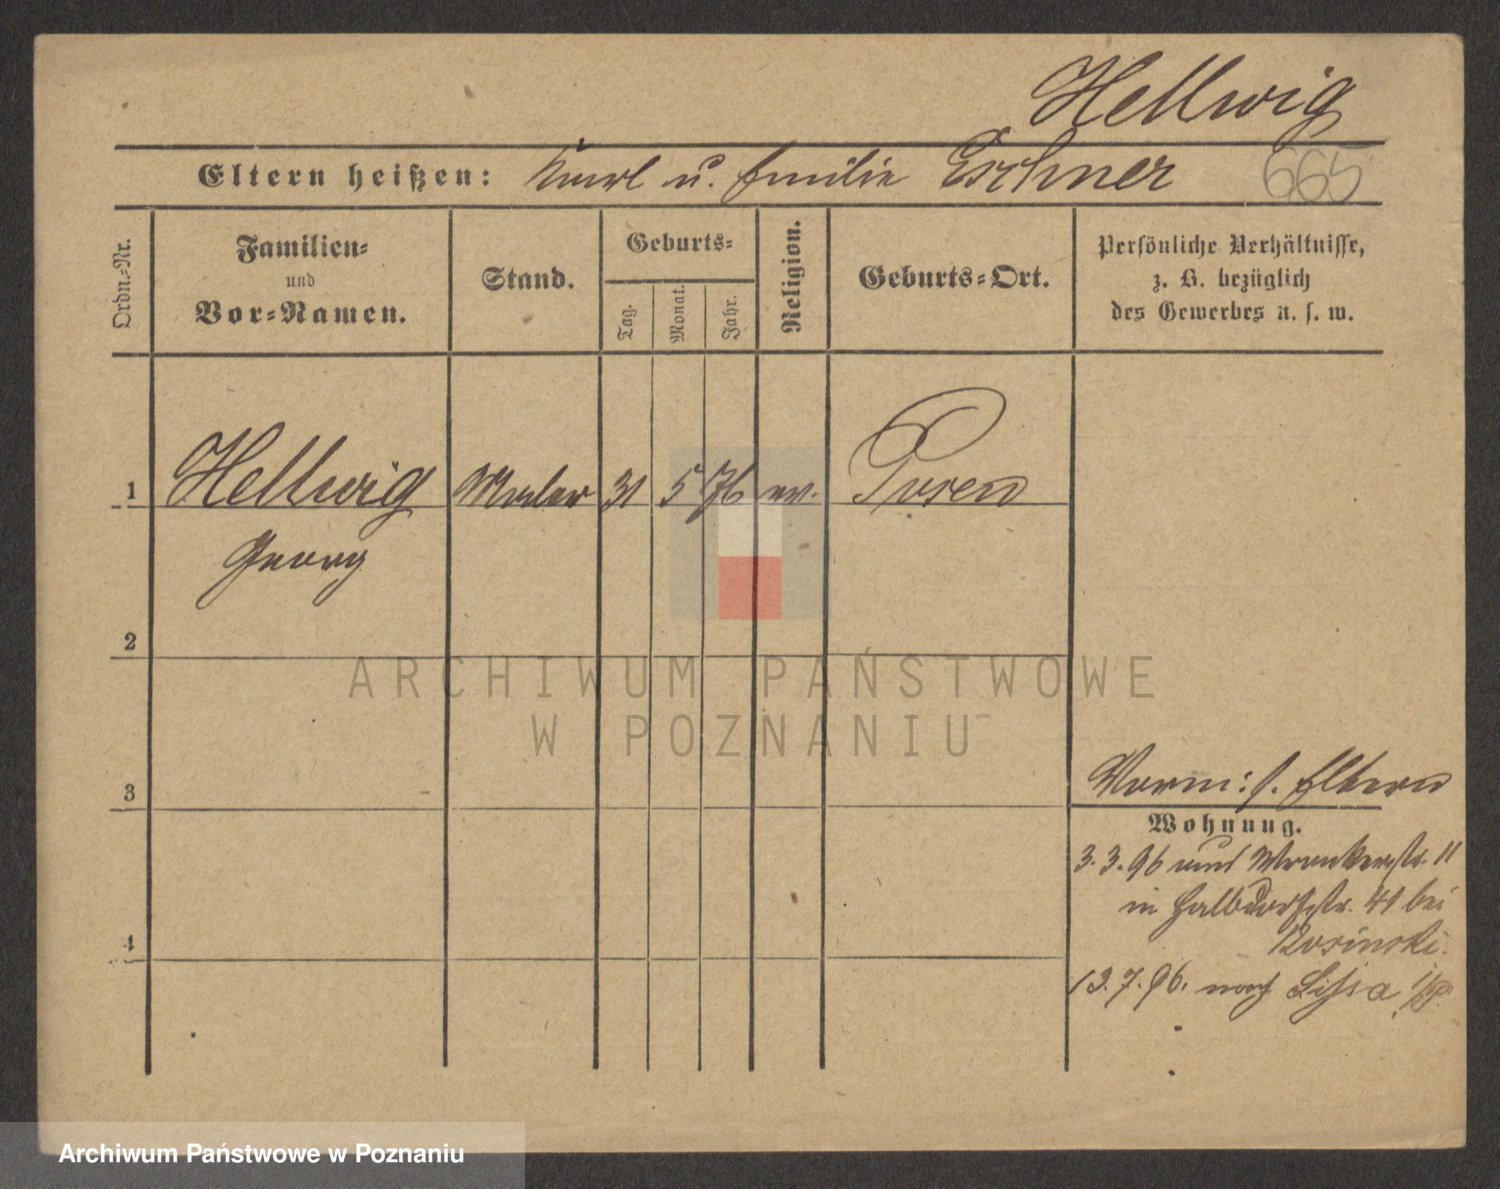 Hellwig
Eltern heißen: Karl u. Emilie Eschner 665
Ordn.-Nr.
Familien-
und
Vor-Namen.
Stand.
Geburts-
Tag.
Monat.
Jahr.
Religion.
Geburts-Ort.
Persönliche Verhältnisse,
z. B. bezüglich
des Gewerbes u. s. w.
1 Hellwig Maler 31 5 76 ev. Posen
Georg
2
3
4
Vorm: s. Eltern
Wohnung.
3.3.96 aus Wronkerstr. 11
in Halbdorfstr. 41 bei
Rosinski.
12.7.96. nach Lissa i/P.
ARCHIWUM PAŃSTWOWE
W POZNANIU
Archiwum Państwowe w Poznaniu